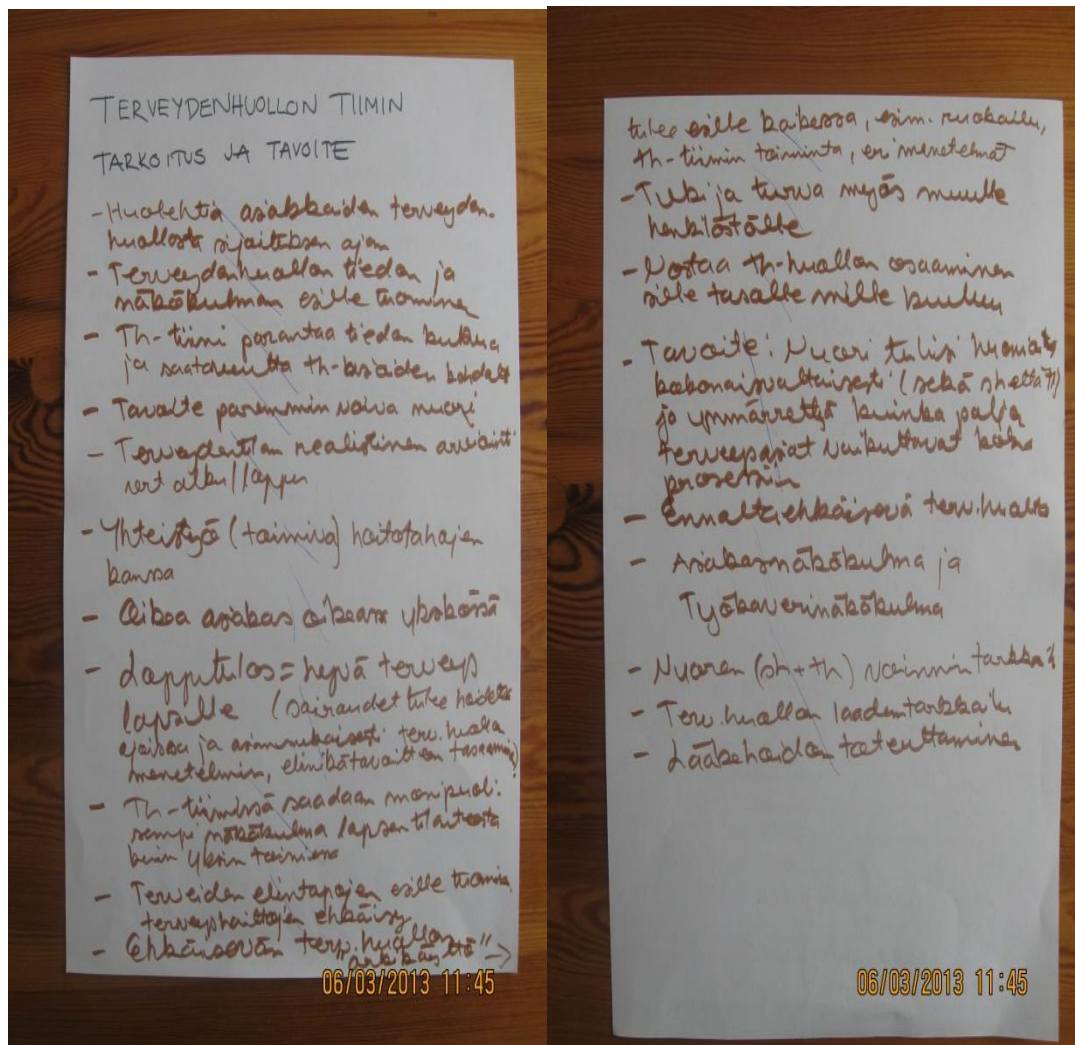 TERVEYDENHUOLLON TIIMIN
TARKOITUS JA TAVOITE
- Huolehtia asiakkaiden terveyden-
huollosta sijaituksen ajan
- Terveydenhuollon tiedon ja
näkökulman esille tuominen
- Th-tiimi parantaa tiedon kulkua
ja saatavuutta th-asioiden kohdalla
- Tavoite paremmin voiva nuori
- Terveydentilan realistinen arviointi
alku/loppu
- Yhteistyö (toimiva) hoitotahojen
kanssa
- Oikea asiakas oikeassa yksikössä
- Lopputulos = hyvä terveys
lapselle (sairaudet tulee hoidetuksi
ajoissa ja asianmukaisesti terv.huollon
menetelmin,
- Th-tiimissä saadaan monipuoli-
sempi näkökulma lapsen tilanteesta
kuin yksin toimiessa
- Terveiden elintapojen esille tuominen
terveyshaittojen ehkäisy
- Ehkäisevän terv.huollon
"arkikäyttö" →
06/03/2013 11:45
tulee esille kaikessa, esim. ruokailu,
th-tiimin toiminta, eri menetelmät
- Tuki ja turva myös muulle
henkilöstölle
- Nostaa th-huollon osaaminen
sille tasolle mille kuuluu
- Tavoite: Nuori tulisi huomioitua
kokonaisvaltaisesti (sekä sh että th)
ja ymmärrettyä kuinka paljon
terveysasiat vaikuttavat koko
prosessiin
- Ennaltaehkäisevä terv.huolto
- Asiakasnäkökulma ja
Työkaverinäkökulma
- Nuoren (sh+th) voinnin tarkkailu
- Terv.huollon laadun tarkkailu
- Lääkehoidon toteuttaminen
06/03/2013 11:45